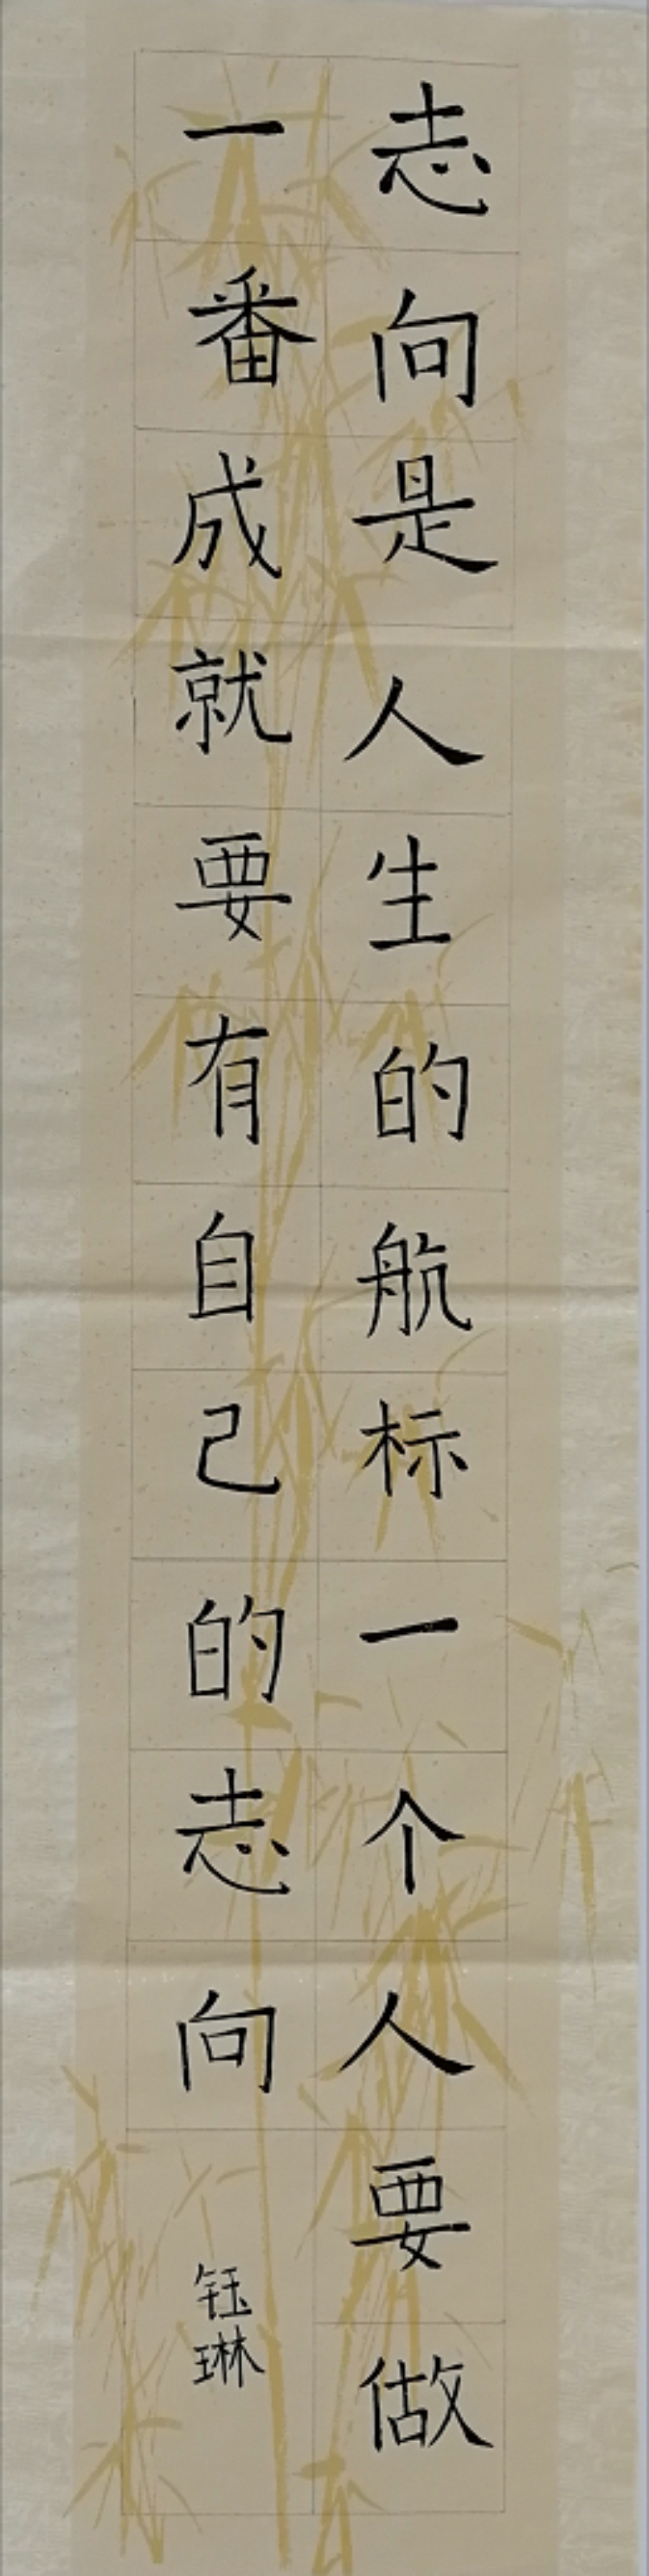 志向是人生的航标一个人要做
一番成就要有自己的志向
钰琳